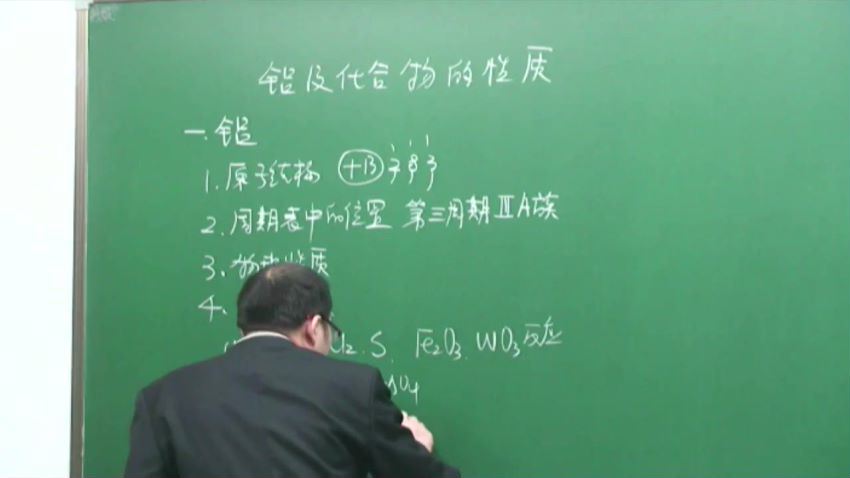 铝及化合物的性质
一.铝
1.原子结构 +13 2 8 3
2.周期表中的位置 第三周期ⅢA族
3.物理性质
4.
l2.S. Fe2O3.WO3反应
SO4